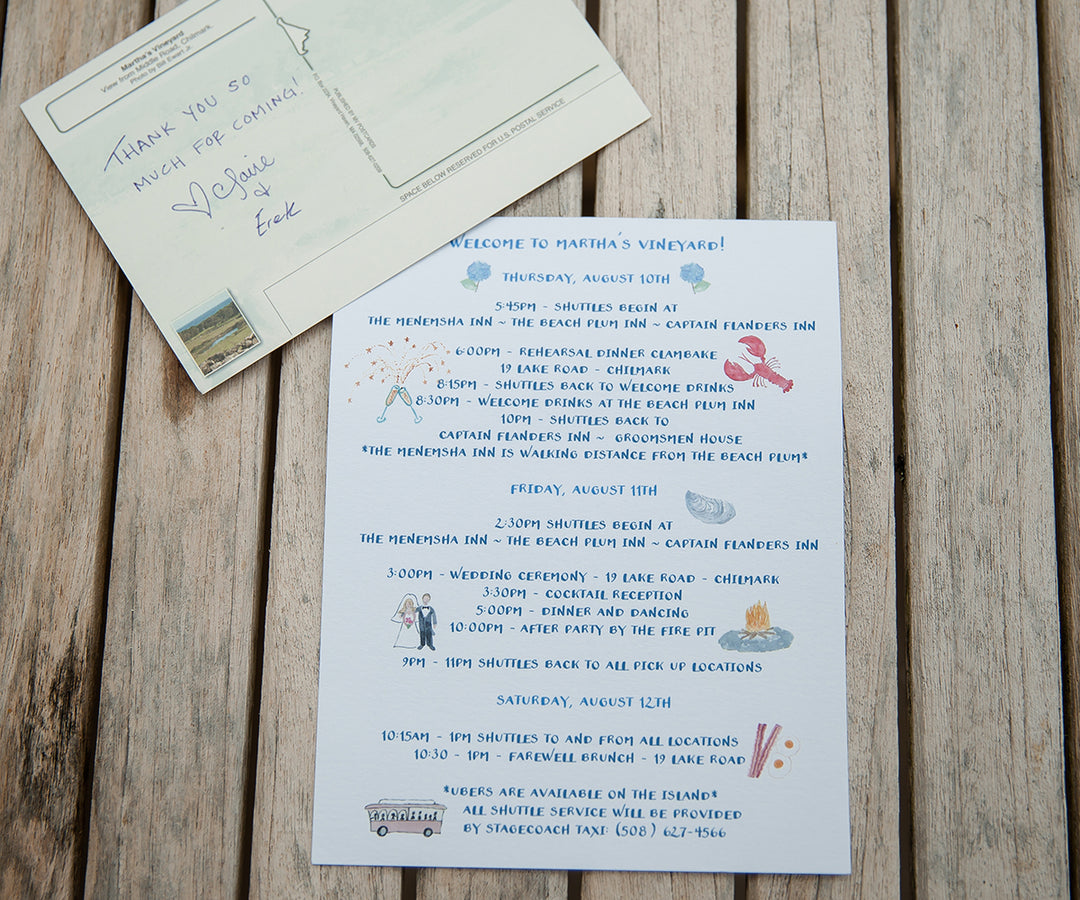 Martha's Vineyard
View from Middle Road, Chilmark
Photo by Bill Ewart Jr.
THANK YOU SO
MUCH FOR COMING!
♡ Claire
&
Erek
PUBLISHED BY MY POSTCARDS
SPACE BELOW RESERVED FOR U.S. POSTAL SERVICE
WELCOME TO MARTHA'S VINEYARD!
THURSDAY, AUGUST 10TH
5:45PM - SHUTTLES BEGIN AT
THE MENEMSHA INN ~ THE BEACH PLUM INN ~ CAPTAIN FLANDERS INN
6:00PM - REHEARSAL DINNER CLAMBAKE
19 LAKE ROAD - CHILMARK
8:15PM - SHUTTLES BACK TO WELCOME DRINKS
8:30PM - WELCOME DRINKS AT THE BEACH PLUM INN
10PM - SHUTTLES BACK TO
CAPTAIN FLANDERS INN ~ GROOMSMEN HOUSE
*THE MENEMSHA INN IS WALKING DISTANCE FROM THE BEACH PLUM*
FRIDAY, AUGUST 11TH
2:30PM SHUTTLES BEGIN AT
THE MENEMSHA INN ~ THE BEACH PLUM INN ~ CAPTAIN FLANDERS INN
3:00PM - WEDDING CEREMONY - 19 LAKE ROAD - CHILMARK
3:30PM - COCKTAIL RECEPTION
5:00PM - DINNER AND DANCING
10:00PM - AFTER PARTY BY THE FIRE PIT
9PM - 11PM SHUTTLES BACK TO ALL PICK UP LOCATIONS
SATURDAY, AUGUST 12TH
10:15AM - 1PM SHUTTLES TO AND FROM ALL LOCATIONS
10:30 - 1PM - FAREWELL BRUNCH - 19 LAKE ROAD
*UBERS ARE AVAILABLE ON THE ISLAND*
ALL SHUTTLE SERVICE WILL BE PROVIDED
BY STAGECOACH TAXI: (508) 627-4566